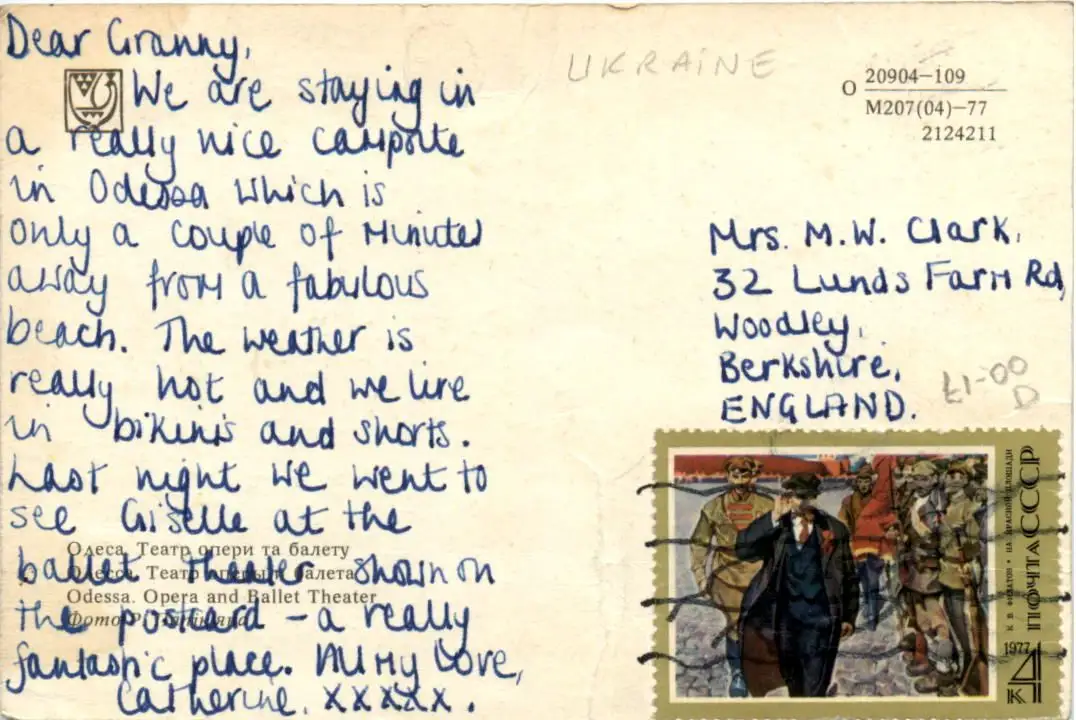 Dear Granny,
We are staying in
a really nice campsite
in Odessa which is
only a couple of minutes
away from a fabulous
beach. The weather is
really hot and we live
in bikinis and shorts.
Last night we went to
see Giselle at the
ballet theater shown on
the postcard - a really
fantastic place. All my love,
Catherine. xxxxx.
Одеса. Театр опери та балету
Одесса. Театр оперы и балета
Odessa. Opera and Ballet Theater
Фото Р.
UKRAINE
О 20904—109
М207(04)—77
2124211
Mrs. M.W. Clark,
32 Lunds Farm Rd,
Woodley,
Berkshire,
ENGLAND.
£1-00
D
К. В. ФИЛАТОВ • НА КРАСНОЙ ПЛОЩАДИ
ПОЧТА СССР
1977
4
К